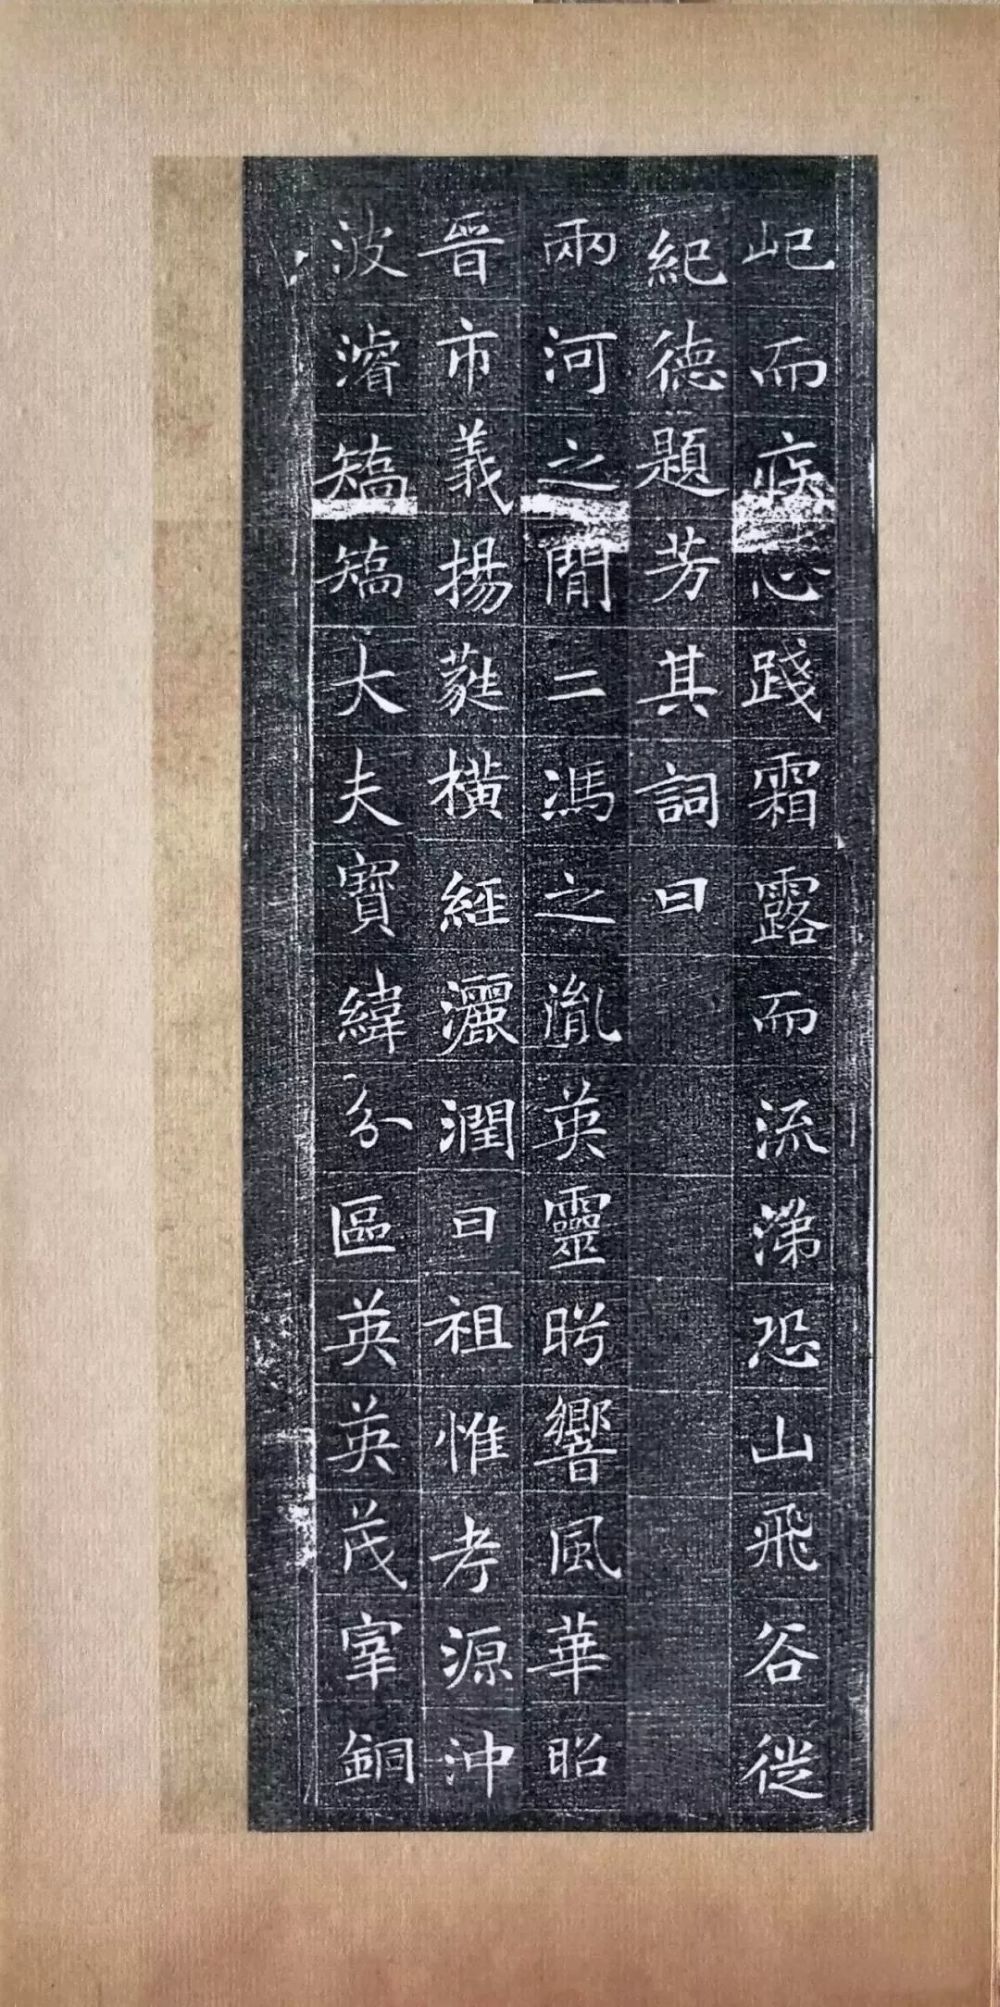 屺而疚心踐霜露而流涕恐山飛谷徙
紀德題芳其詞曰
兩河之間二馮之胤英靈盻響風華昭
晉市義揚蕤橫經灑潤曰祖惟考源沖
波濬矯矯大夫寶緯分區英英茂宰銅